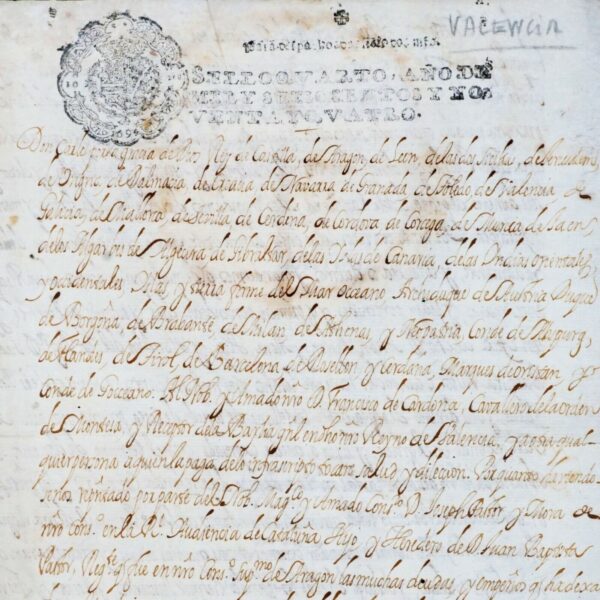 VALENCIA
Para despachos de oficio dos mrs.
SELLO QVARTO, AÑO DE
MIL Y SEISCIENTOS Y NO
VENTA Y QVATRO.
Don Carlos por la gracia de Dios Rey de Castilla, de Aragon, de Leon, de las dos Sicilias, de Hierusalem,
de Ungria, de Dalmacia, de Croacia, de Navarra, de Granada, de Toledo, de Valencia, de
Galicia, de Mallorca, de Sevilla, de Cerdeña, de Cordova, de Corcega, de Murcia, de Jaen,
de los Algarbes, de Algecira, de Gibraltar, de las Islas de Canaria, de las Indias orientales,
y occidentales, Islas, y tierra firme del Mar Occeano, Archiduque de Austria, Duque
de Borgoña, de Brabante, de Milan, de Athenas, y Neopatria, Conde de Aspurg,
de Flandes, de Tirol, de Barcelona, de Rosellon, y Cerdaña, Marques de Oristan, y
Conde de Goceano. Al Nob. y Amado nro D. Francisco de Cardona, Cavallero de la orden
de Montesa, y Receptor de la Baylia gñl en el nro Reyno de Valencia, y a otra qual-
quier persona a quien la paga de lo infrascrito tocare, salud y dileccion. Por quanto haviendo
senos representado por parte del Nob. Mag.co y Amado Cons.o D. Joseph Pastor, y Mora de
nro cons.o en la R.l Audiencia de Cataluña, Hijo, y Heredero de D. Juan Baptista
Pastor, Reg.te q fue en nro Cons.o Sup.mo de Aragon las muchas deudas, y empeños q ha dexa